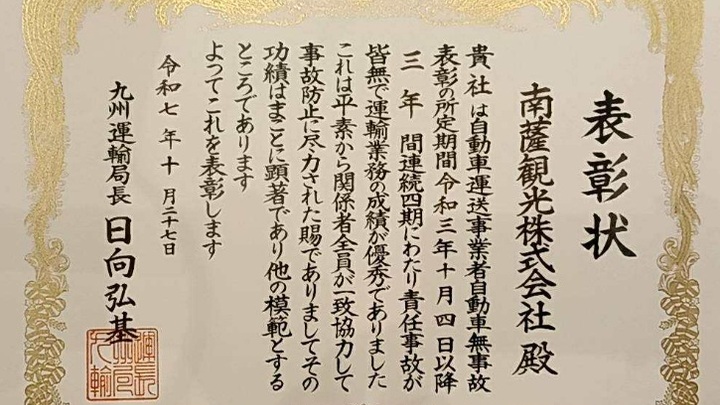 表彰状
南薩観光株式会社 殿
貴社は自動車運送事業者自動車無事故
表彰の所定期間令和三年十月四日以降
三年 間連続四期にわたり責任事故が
皆無で運輸業務の成績が優秀でありました
これは平素から関係者全員が一致協力して
事故防止に尽力された賜でありましてその
功績はまことに顕著であり他の模範とする
ところであります
よってこれを表彰します
令和七年十月二十七日
九州運輸局長 日向弘基